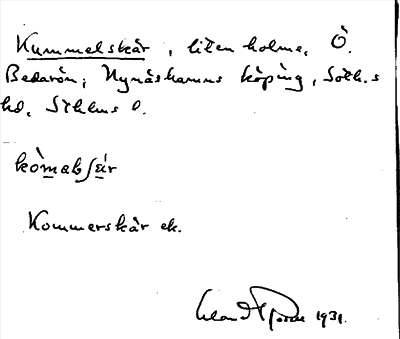 Kummelskär, liten holme, Ö.
Bedarön; Nynäshamns köping, Soth.s
hd, Sthlms l.
kòmabʃæ̀r
Kommerskär ek.
1931.